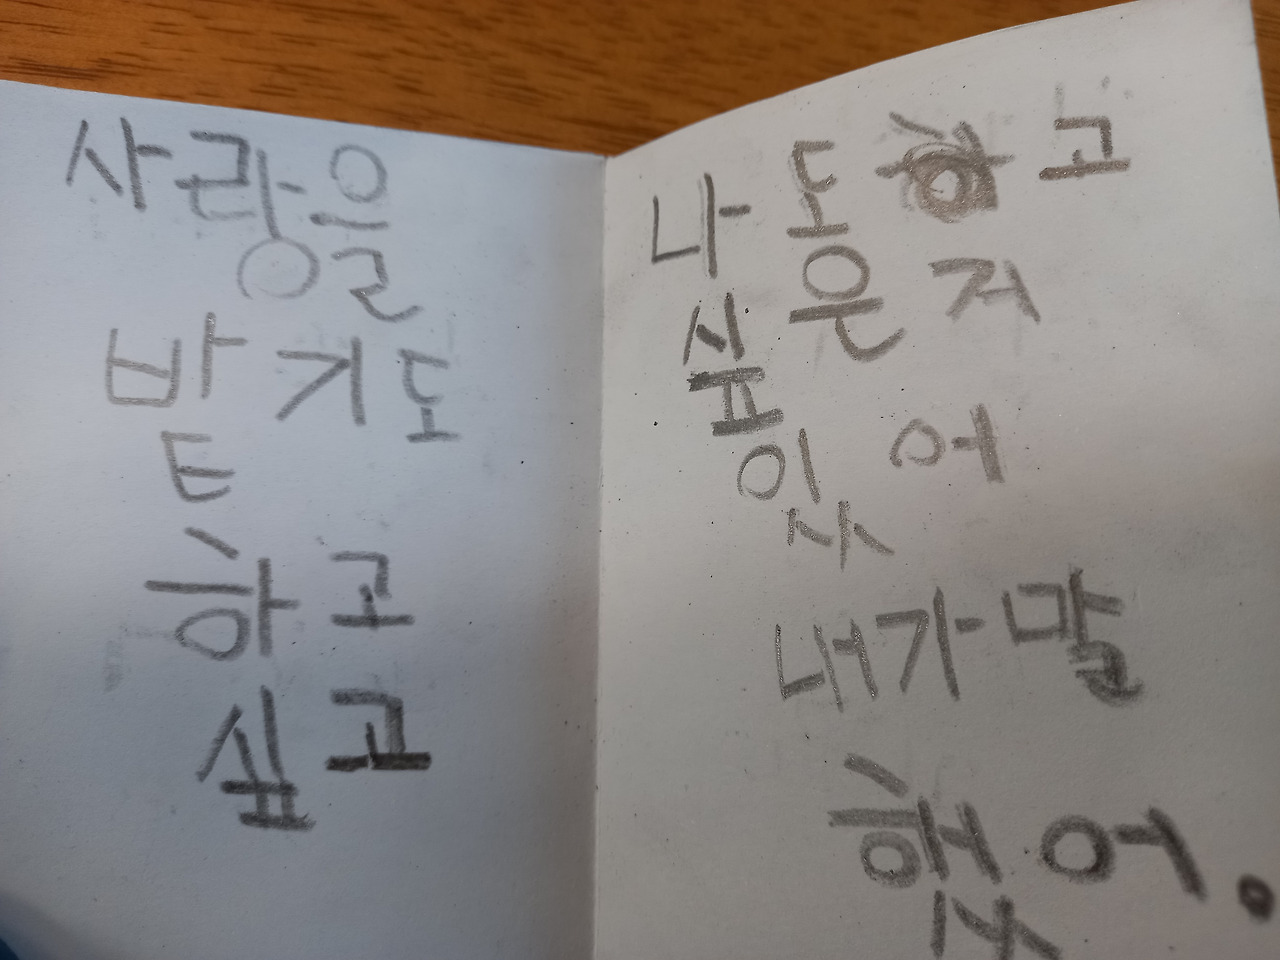 사랑을
밭기도
하고
싶고
나도하고
싶은거
있어
내가말
했어.